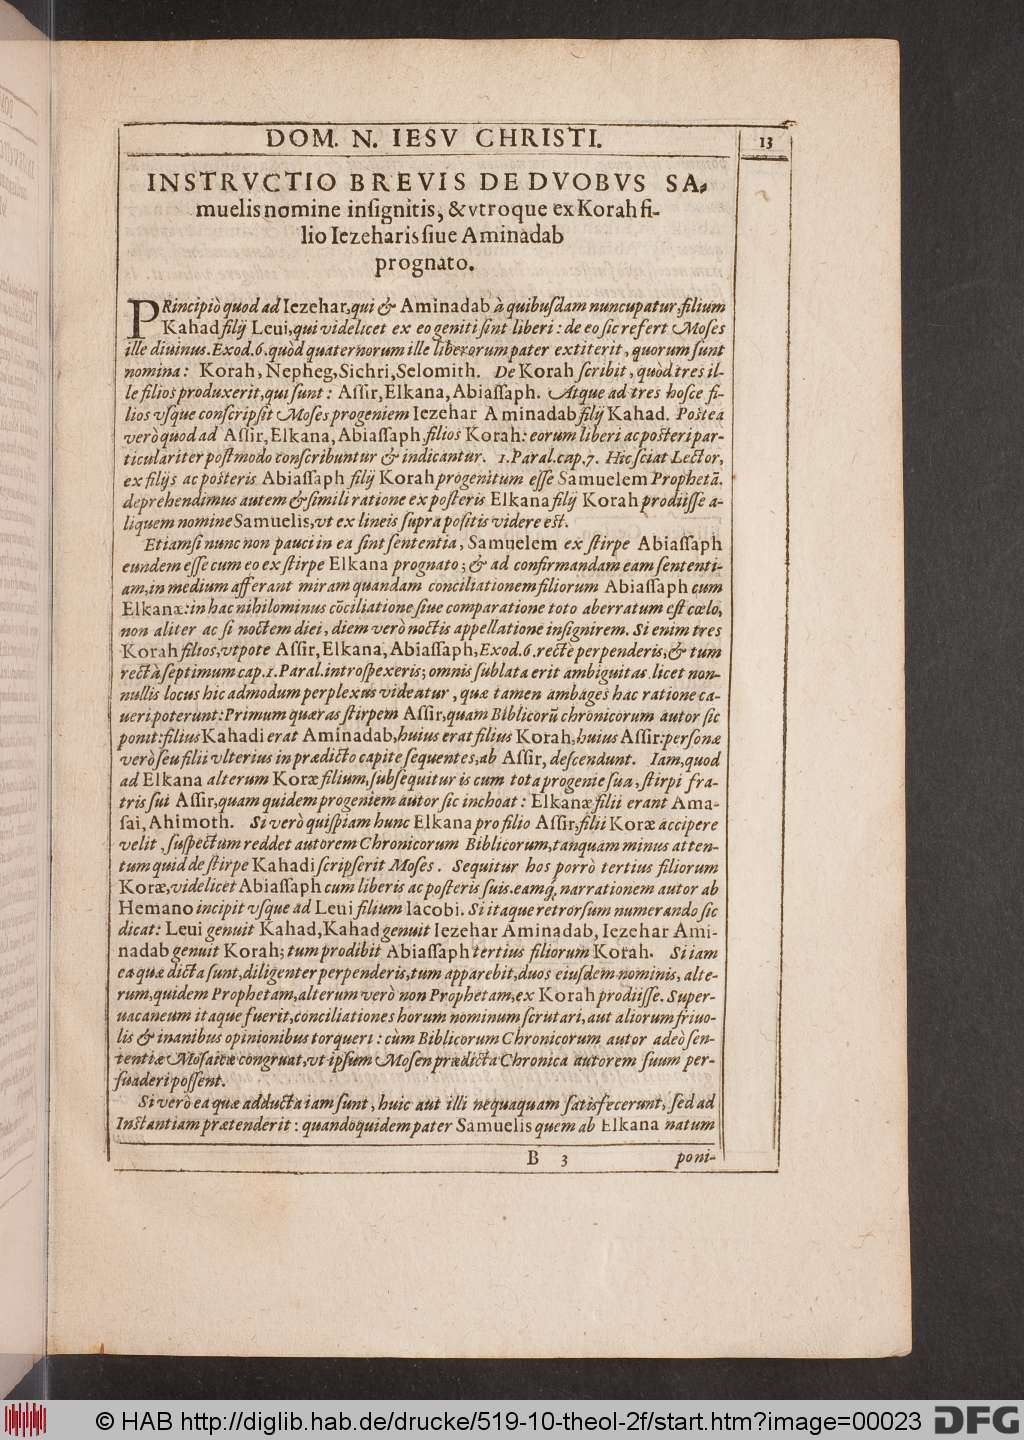 DOM. N. IESV CHRISTI.
13
INSTRVCTIO BREVIS DE DVOBVS SA-
muelis nomine inſignitis, & vtroque ex Korah fi-
lio Iezeharis ſiue Aminadab
prognato.
PRincipiò quod ad Iezehar, qui & Aminadab à quibuſdam nuncupatur, filium
Kahad filij Leui, qui videlicet ex eo geniti ſint liberi: de eo ſic refert Moſes
ille diuinus. Exod. 6. quòd quaternorum ille liberorum pater extiterit, quorum ſunt
nomina: Korah, Nepheg, Sichri, Selomith. De Korah ſcribit, quòd tres il-
le filios produxerit, qui ſunt: Aſſir, Elkana, Abiaſſaph. Atque ad tres hoſce fi-
lios vſque conſcripſit Moſes progeniem Iezehar Aminadab filij Kahad. Postea
verò quod ad Aſſir, Elkana, Abiaſſaph, filios Korah: eorum liberi ac posteri par-
ticulariter poſtmodo conſcribuntur & indicantur. 1. Paral. cap. 7. Hic ſciat Lector,
ex filijs ac posteris Abiaſſaph filij Korah progenitum eſſe Samuelem Prophetã.
deprehendimus autem & ſimili ratione ex poſteris Elkana filij Korah prodijſſe a-
liquem nomine Samuelis, vt ex lineis ſupra poſitis videre est.
Etiamſi nunc non pauci in ea ſint ſententia, Samuelem ex ſtirpe Abiaſſaph
eundem eſſe cum eo ex ſtirpe Elkana prognato; & ad confirmandam eam ſententi-
am, in medium afferant miram quandam conciliationem filiorum Abiaſſaph cum
Elkanæ: in hac nihilominus cõciliatione ſiue comparatione toto aberratum eſt cœlo,
non aliter ac ſi noctem diei, diem verò noctis appellatione inſignirem. Si enim tres
Korah filios, vtpote Aſſir, Elkana, Abiaſſaph, Exod. 6. rectè perpenderis, & tum
rectà ſeptimum cap. 1. Paral. introſpexeris; omnis ſublata erit ambiguitas. licet non-
nullis locus hic admodum perplexus videatur, quæ tamen ambages hac ratione ca-
ueri poterunt: Primum quæras ſtirpem Aſſir, quam Biblicorũ chronicorum autor ſic
ponit: filius Kahadi erat Aminadab, huius erat filius Korah, huius Aſſir: perſonæ
verò ſeu filii vlterius in prædicto capite ſequentes, ab Aſſir, deſcendunt. Iam, quod
ad Elkana alterum Koræ filium, ſubſequitur is cum tota progenie ſua, ſtirpi fra-
tris ſui Aſſir, quam quidem progeniem autor ſic inchoat: Elkanæ filii erant Ama-
ſai, Ahimoth. Si verò quiſpiam hunc Elkana pro filio Aſſir, filii Koræ accipere
velit, ſuſpectum reddet autorem Chronicorum Biblicorum, tanquam minus atten-
tum quid de ſtirpe Kahadi ſcripſerit Moſes. Sequitur hos porrò tertius filiorum
Koræ, videlicet Abiaſſaph cum liberis ac poſteris ſuis. eamq́; narrationem autor ab
Hemano incipit vſque ad Leui filium Iacobi. Si itaque retrorſum numerando ſic
dicat: Leui genuit Kahad, Kahad genuit Iezehar Aminadab, Iezehar Ami-
nadab genuit Korah; tum prodibit Abiaſſaph tertius filiorum Korah. Si iam
ea quæ dicta ſunt, diligenter perpenderis, tum apparebit, duos eiuſdem nominis, alte-
rum, quidem Prophetam, alterum verò non Prophetam, ex Korah prodiiſſe. Super-
uacaneum itaque fuerit, conciliationes horum nominum ſcrutari, aut aliorum friuo-
lis & inanibus opinionibus torqueri: cùm Biblicorum Chronicorum autor adeò ſen-
tentiæ Moſaicæ congruat, vt ipſum Moſen prædicta Chronica autorem ſuum per-
ſuaderi poſſent.
Si verò ea quæ adducta iam ſunt, huic aut illi nequaquam ſatisfecerunt, ſed ad
Instantiam prætenderit: quandoquidem pater Samuelis quem ab Elkana natum
B 3
poni-
© HAB http://diglib.hab.de/drucke/519-10-theol-2f/start.htm?image=00023
DFG